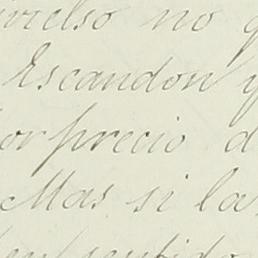 no
Escandon y
por precio d
Mas si la
sentido